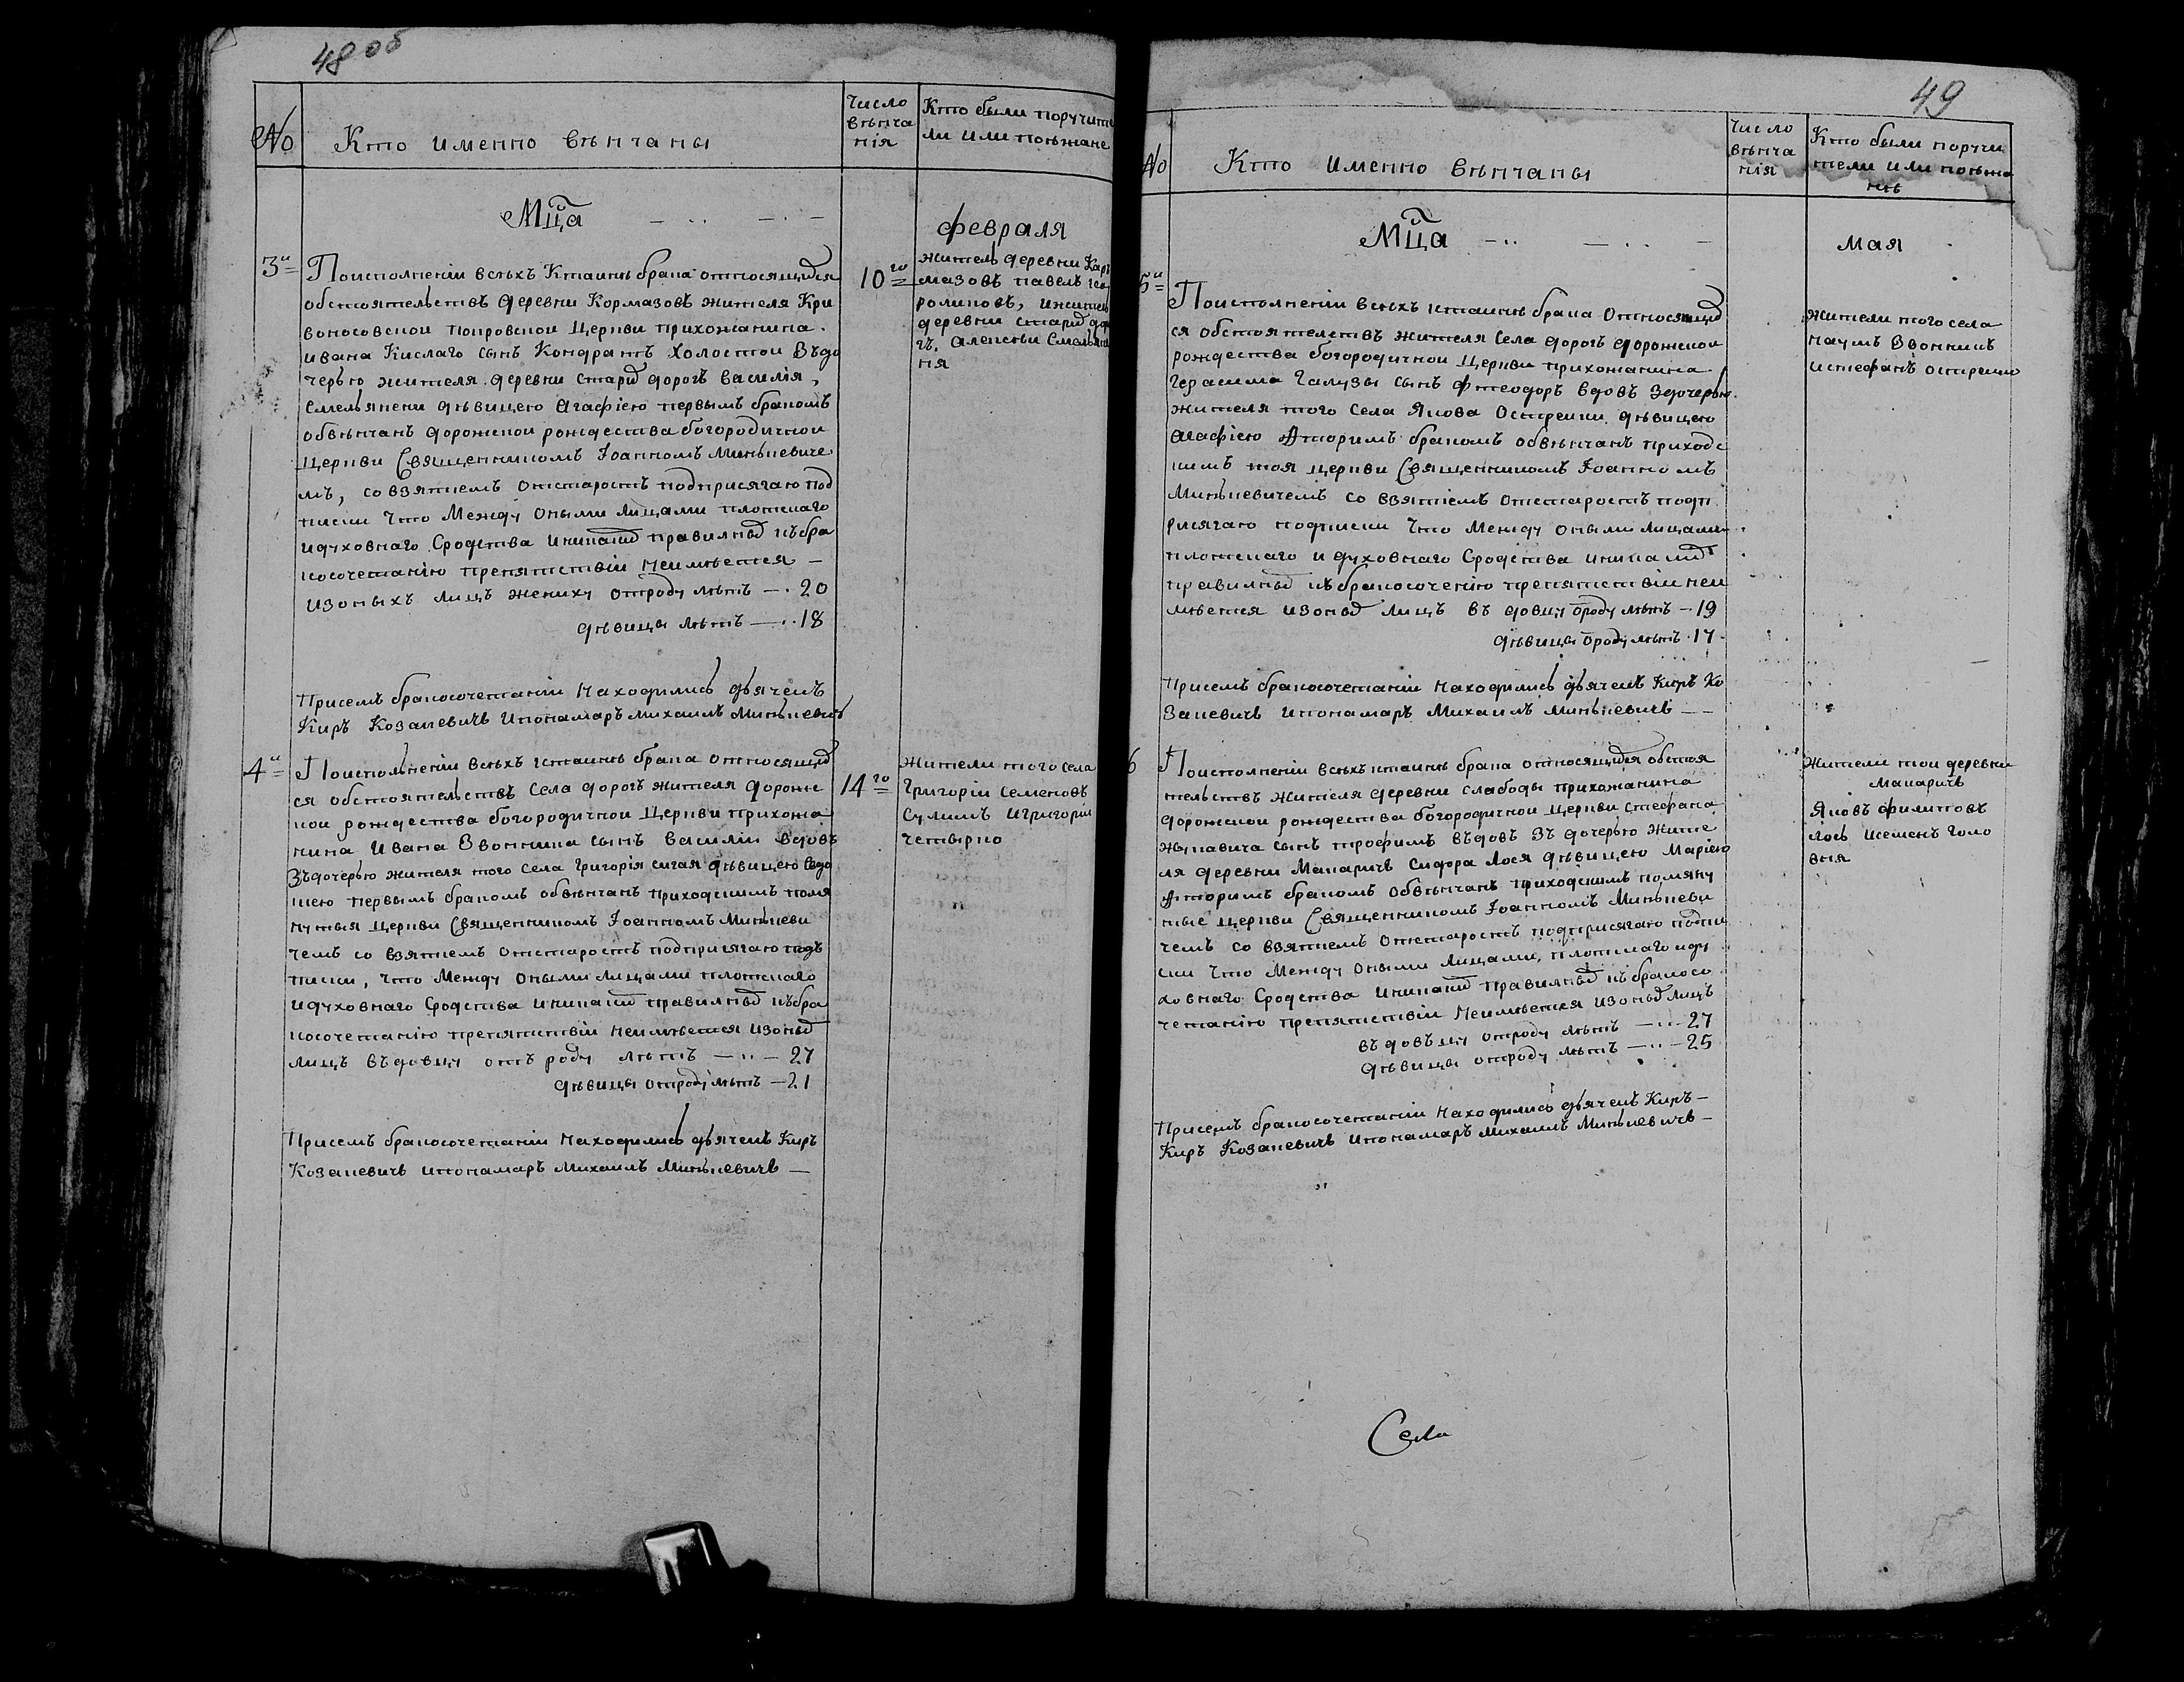 48 об
№
Кто именно вѣнчаны
Число
вѣнча
нія
Кто были поручите
ли или поѣжане
Мц҃а
февраля
3й
Поисполненіи всѣхъ Ктаинѣ брака относящихся
обстоятельствъ деревни Кормазовъ жителя Кри
воносовской покровской Церкви прихожанина
ивана Кислаго сынъ Кондратъ холостой Зъдо
черью жителя деревни старих дорогъ василія,
Смельянени дѣвицею Агафіею первымъ бракомъ
обвѣнчанъ дорожской рождества богородичной
Церкви Священникомъ Іоанномъ Минькевиче
мъ, со взятиемъ отстаростъ подприсягаю под
писки Что Между оными лицами плотскаго
идуховнаго Сродства иникаких правилных къбра
косочетанію препятствіи неимѣется —
изоныхъ лицъ жениху отроду лѣтъ — 20
дѣвицы лѣтъ — 18
Присемъ бракосочетаніи находились дьячекъ
Киръ Козакевичъ ипономаръ михаилъ Минькевичъ
10го
житель деревни Кор
мазовъ павелъ
ролиновъ, ижитель
деревни старих доро
гъ. Алексѣи Смелья
ня
4й
Поисполненіи всѣхъ ктаинѣ брака относящих
ся обстоятельствъ села дорогъ жителя дорожс
кои рождества богородичной Церкви прихожа
нина Ивана Звонкина сынъ василіи вдовъ
Зъдочерью жителя того села григорія сигая дѣвицею Евдо
киею первымъ бракомъ обвѣнчанъ приходскимъ помя
нутыя Церкви Священникомъ Іоанномъ Минькеви
чемъ со взятиемъ отстаростъ подприсягаю подъ
писки, что Между оными лицами плотскаго
идуховнаго Сродства иникаких правилных къбра
косочетанію препятствіи неимѣется изоных
лицъ въдовцу отъ роду лѣтъ — 27
дѣвицы отроду лѣтъ — 21
Присемъ бракосочетаніи находились дьячекъ Киръ
Козакевичъ ипономаръ михаилъ Минькевичъ —
14го
жители того села
Григоріи семеновъ
Сулимъ игригоріи
четвирко
49
№
Кто именно вѣнчаны
Число
вѣнча
нія
Кто были поручи
тели или поѣжа
нѣ
Мц҃а
мая
5й
Поисполненіи всѣхъ ктаинѣ брака относящих
ся обстоятелствъ жителя села дорогъ дорожской
рождества богородичной Церкви прихожанина
Герасима Галузы сынъ фтеодоръ вдовъ Здочерью
жителя того села Якова Остренки дѣвицею
Агафіею вторимъ бракомъ обвѣнчанъ приходс
кимъ тоя Церкви Священникомъ Іоанномъ
Минькевичемъ со взятіемъ отстаростъ подп
рисягаю подписки Что Между оными лицами
плотскаго и духовнаго Сродства иникаких
правилных къбракосочению препятствіи неи
мѣется изоных лицъ въ довцу ѿроду лѣтъ — 19
дѣвицы ѿроду лѣтъ 17
Присемъ бракосочетаніи находились дьячекъ Киръ Ко
закевичъ ипономаръ Михаилъ Минькевичъ — —
жители того села
наумъ Звонкинъ
истефанъ остренко
6
Поисполненіи всѣхъ ктаинѣ брака относящихся обстоя
тельствъ жителя деревни слабоды прихожанина
дорожской рождества богородичной Церкви стефана
сынъ трофимъ въдовъ Зъ дочерью жите
ля деревни Макаричъ сидора лося дѣвицею Маріею
вторимъ бракомъ обвѣнчанъ приходскимъ помяну
тыѣ Церкви Священникомъ Іоанномъ Минькеви
чемъ со взятиемъ отстаростъ подприсягаю подпи
ски Что Между оными лицами, плотскаго иду
ховнаго Сродства иникаких правилных къ бракосо
четанію препятствіи неимѣется изоных лицъ
въдовъцу отроду лѣтъ — 27
дѣвицы отроду лѣтъ — 25
Присемъ бракосочетаніи находились дьячекъ Киръ —
Киръ Козакевичъ ипономаръ михаилъ Минькевичъ —
Жители тои деревни
Макаричъ
Яковъ филиповъ
лось исеменъ голо
вня
Села